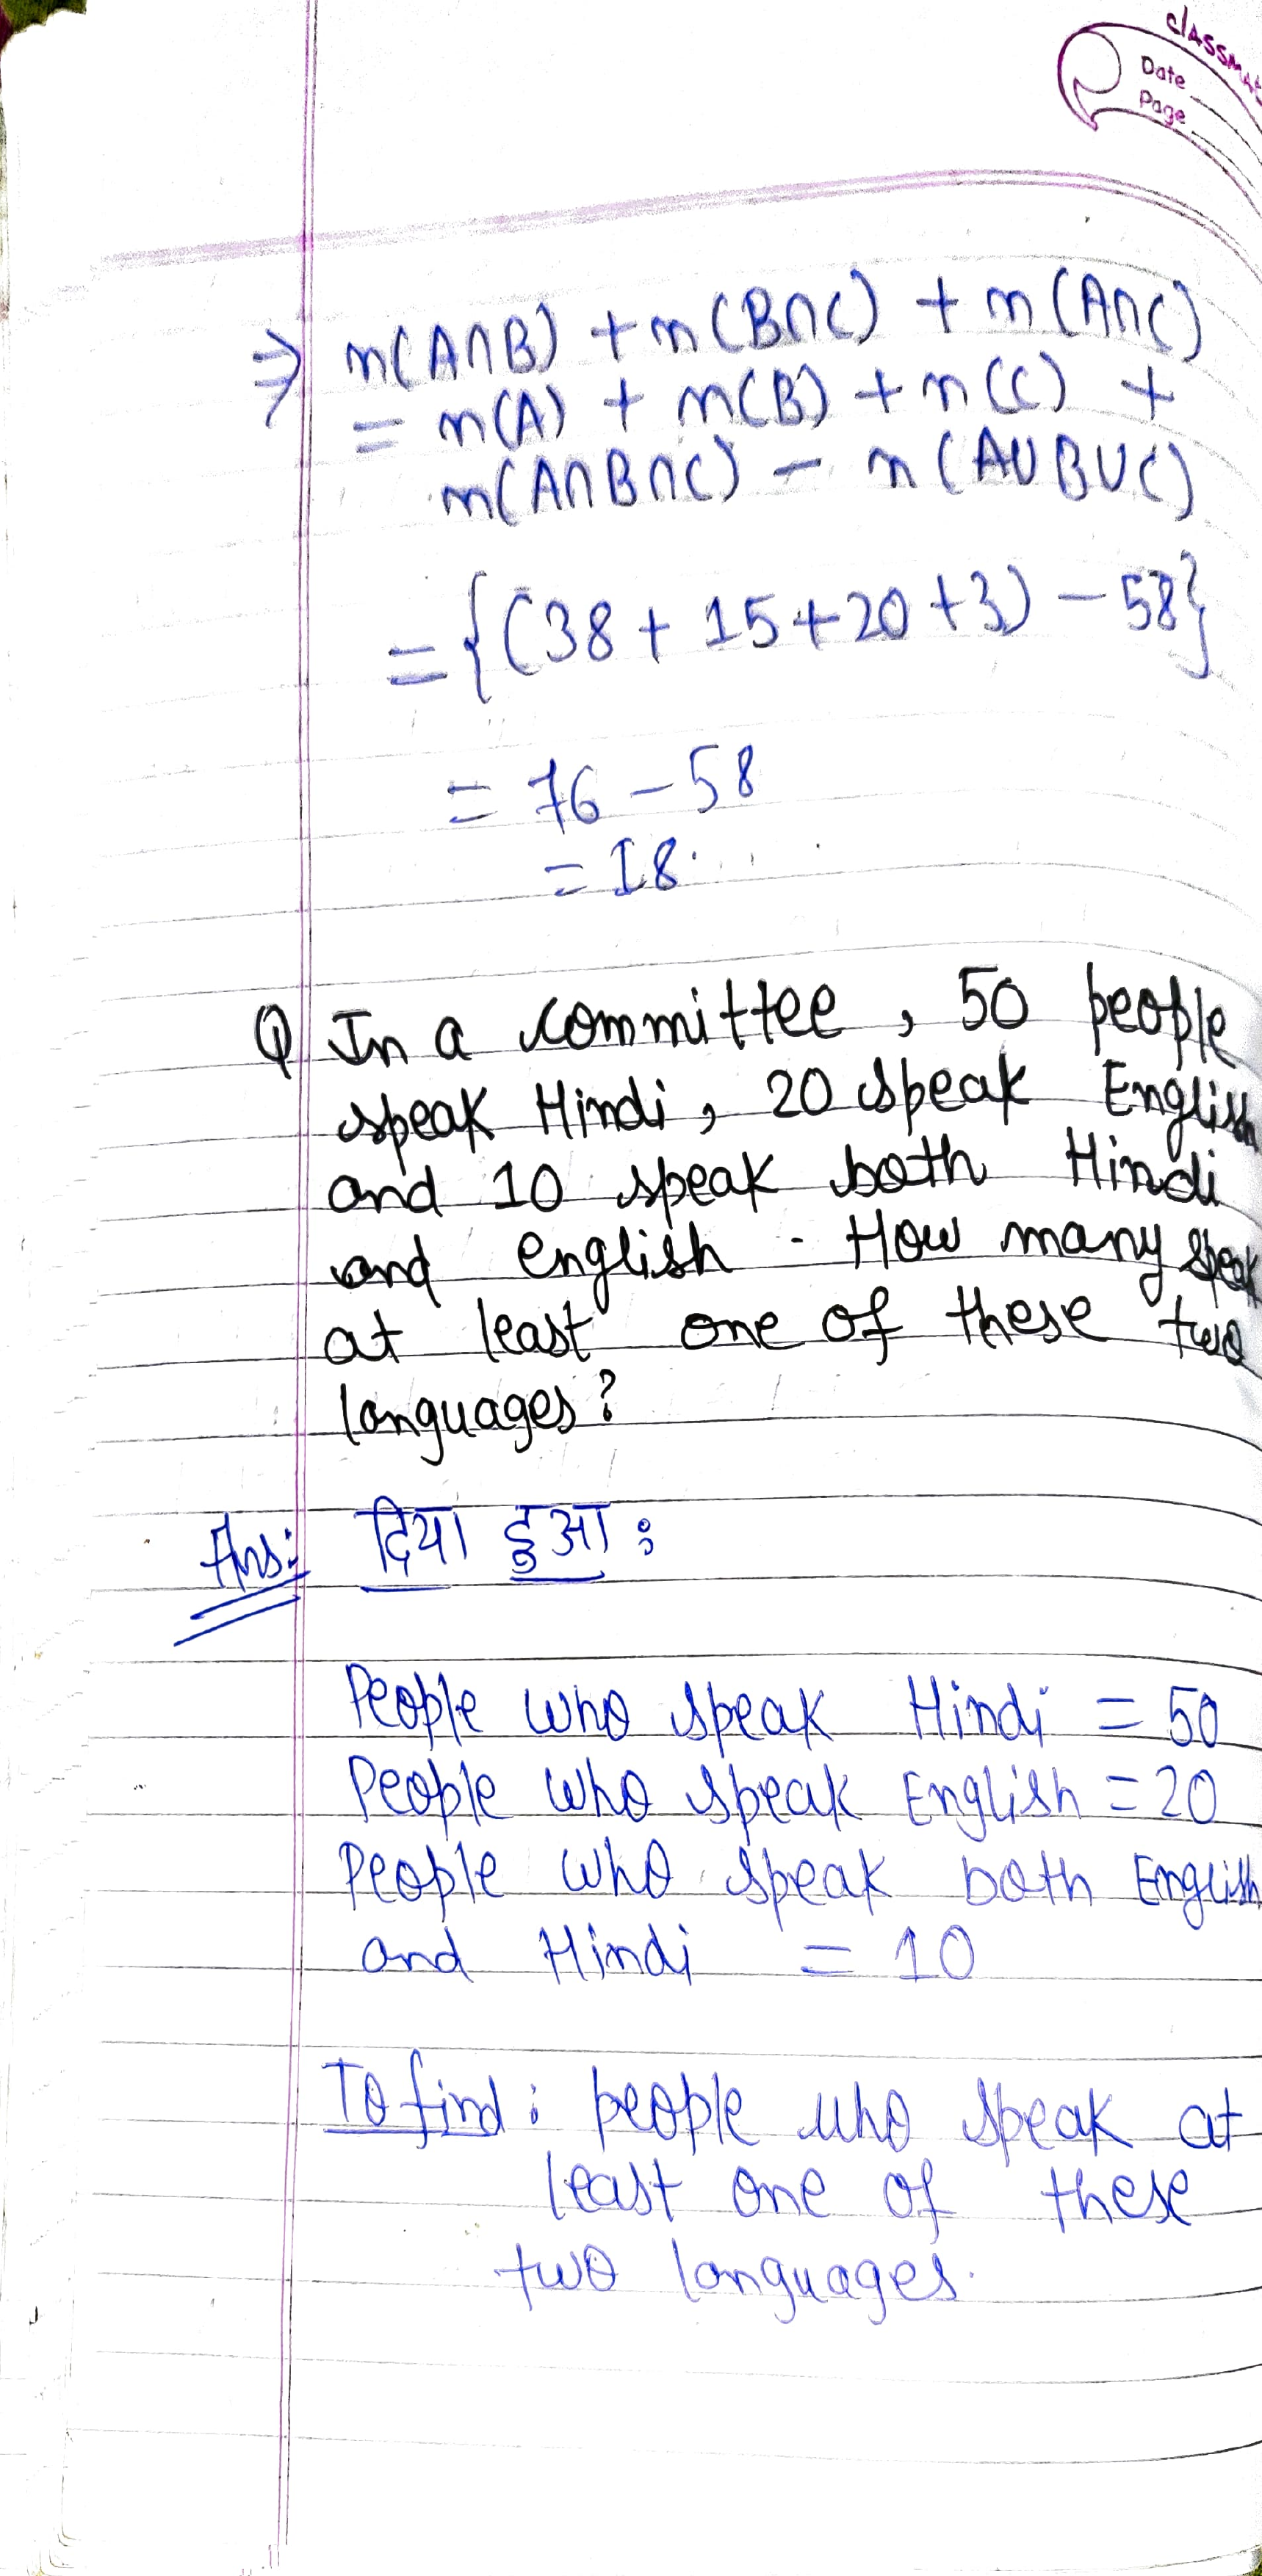 classmate
Date
Page
⇒ n(A∩B) + n(B∩C) + n(A∩C)
= n(A) + n(B) + n(C) +
n(A∩B∩C) − n(A∪B∪C)
= {(38 + 15 + 20 + 3) − 58}
= 76 − 58
= 18
Q In a committee, 50 people
speak Hindi, 20 speak English
and 10 speak both Hindi
and english. How many speak
at least one of these two
languages?
Ans: दिया हुआ :
People who speak Hindi = 50
People who speak English = 20
People who speak both English
and Hindi = 10
To find : people who speak at
least one of these
two languages.